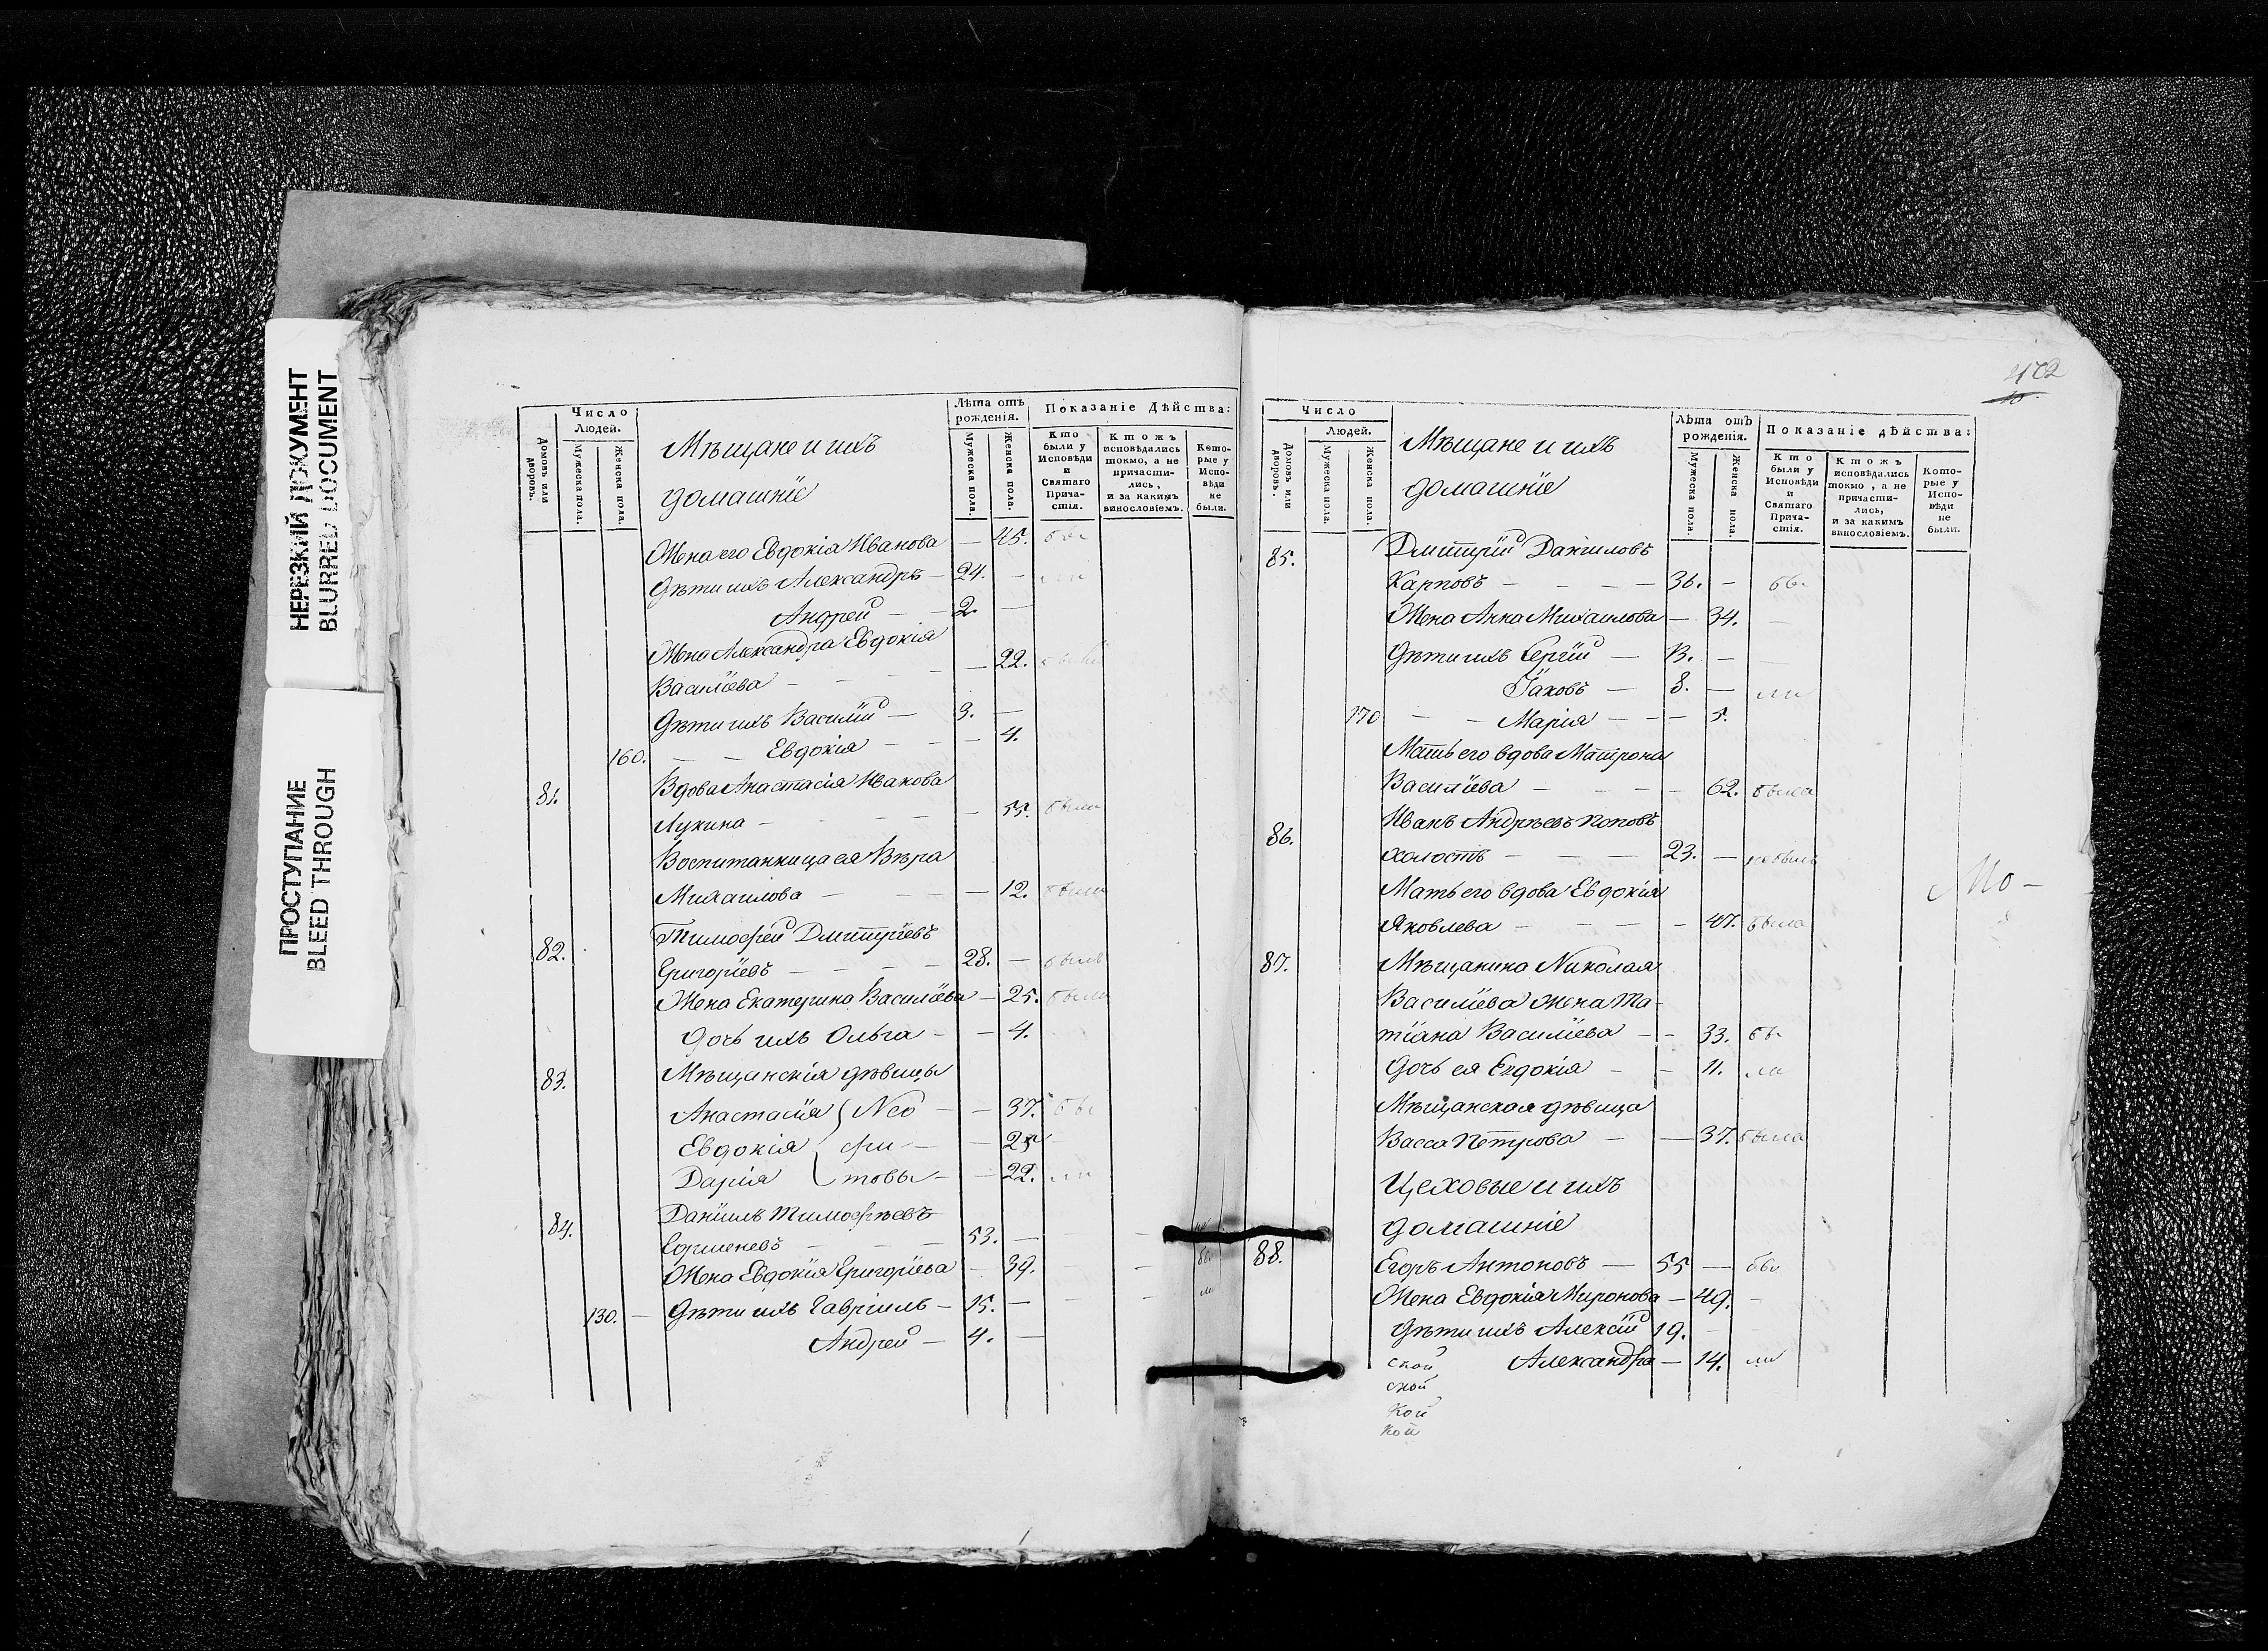 НЕРЕЗКИЙ ДОКУМЕНТ
BLURRED DOCUMENT
ПРОСТУПАНИЕ
BLEED THROUGH
Число Людей.
Домовъ или дворовъ.
Мужеска пола.
Женска пола.
Мѣщане и ихъ
домашніе
Лѣта отъ рожденія.
Мужеска пола.
Женска пола.
Показаніе Дѣйства:
Кто были у Исповѣди и Святаго Прича-стія.
Ктожъ исповѣдались токмо, а не причасти-лись, и за какимъ винословіемъ.
Кото-рые у Испо-вѣди не были.
Жена его Евдокія Иванова — 45. бы
Дѣти ихъ Александръ — 24. — ли
Андрей — 2. —
Жена Александра Евдокія
Василіева — 22.
Дѣти ихъ Василій — 3. —
160. — — Евдокія — — 4.
81. Вдова Анастасія Иванова
Лукина — 55. были
Воспитанница ея Вѣра
Михаилова — — 12. были
82. Тимофей Дмитріевъ
Григоріевъ — 28. — былъ
Жена Екатерина Василіева — 25. была
Дочь ихъ Ольга — — 4.
83. Мѣщанскія дѣвицы
Анастасія Нео — — 37. бы
Евдокія фи — — 25
Дарія товы — — 22. ли
84. Даніилъ Тимофѣевъ
53. —
Жена Евдокія Григоріева — 39. — бы
130. — Дѣти ихъ Гавріилъ — 15. — — — ли
Андрей — 4. —
402
Число Людей.
Домовъ или дворовъ.
Мужеска пола.
Женска пола.
Мѣщане и ихъ
домашніе
Лѣта отъ рожденія.
Мужеска пола.
Женска пола.
Показаніе дѣйства:
Кто были у Исповѣди и Святаго Прича-стія.
Ктожъ исповѣдались токмо, а не причасти-лись, и за какимъ винословіемъ.
Кото-рые у Испо-вѣди не были.
85. Дмитрій Даніиловъ
Карповъ — — — 36. — бы
Жена Анна Михаилова — 34. —
Дѣти ихъ Сергій — 13. — —
Іаковъ — 8. — ли
170 — — Марія — — — 5.
Мать его вдова Матрона
Василіева — — — — 62. была
86. Иванъ Андреевъ Поповъ
холостъ — — — 23. — небылъ
Мать его вдова Евдокія
Яковлева — — — — 47. была
Мо-
87. Мѣщанина Николая
Василіева жена Та-
тіана Василіева — — 33. бы
Дочь ея Евдокія — — 11. ла
Мѣщанская дѣвица
Васса Петрова — — 37. была
Цеховые и ихъ
домашніе
88. Егоръ Антоновъ — 55 — бы
Жена Евдокія Миронова — 49. —
Дѣти ихъ Алексій 19. —
Александра — 14. ли
ской
ской
кой
кой